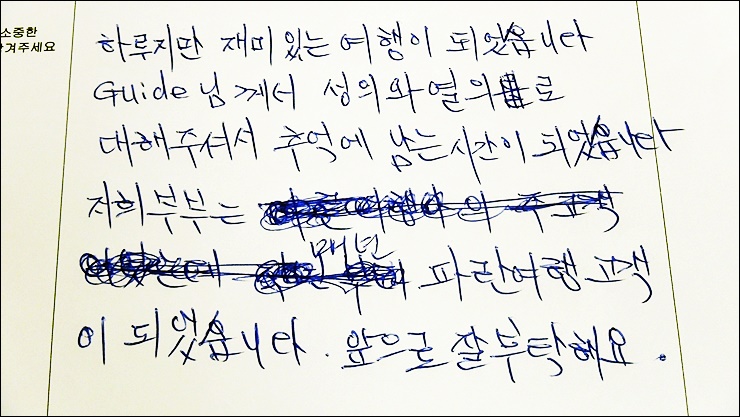 소중한
겨주세요
하루지만 재미있는 여행이 되었습니다
Guide님께서 성의와 열의로
대해주셔서 추억에 남는 시간이 되었습니다
저희 부부는
매년
파란여행 고객
이 되었습니다. 앞으로 잘 부탁해요.